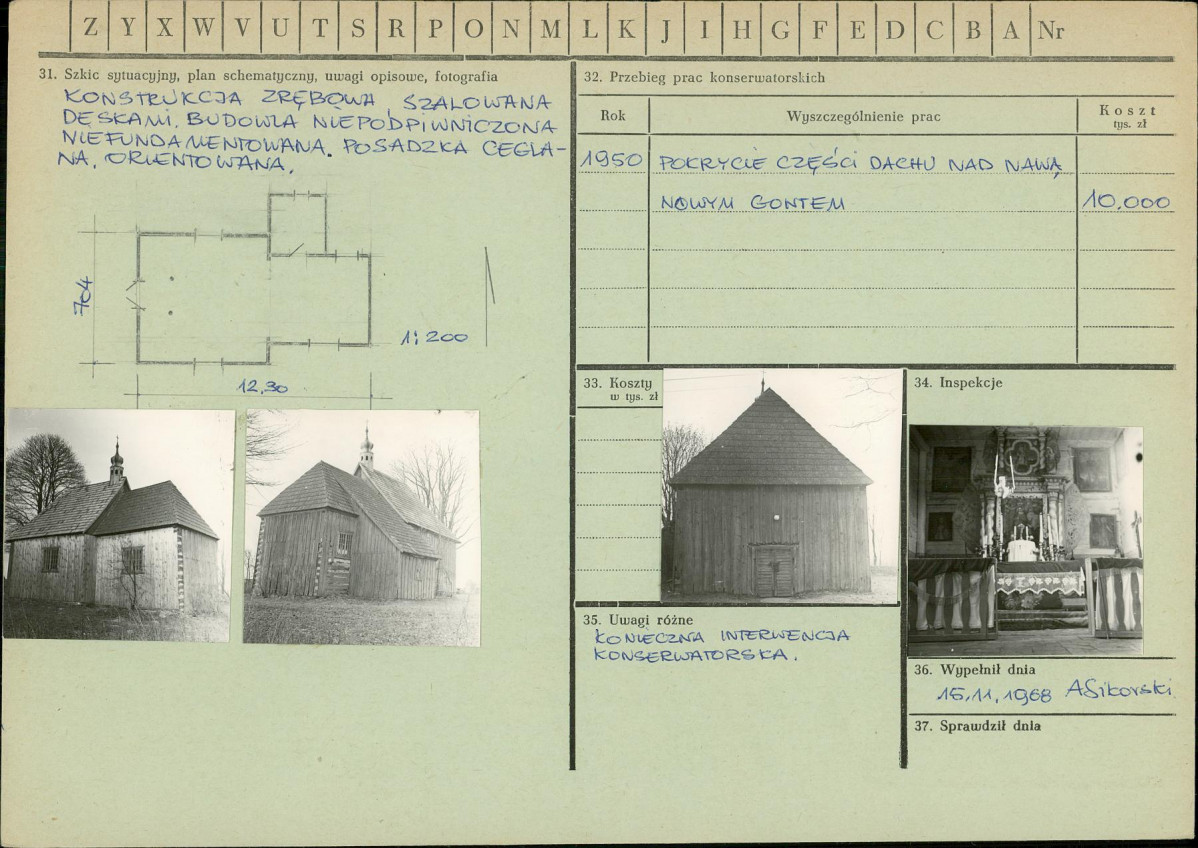 Z Y X W V U T S R P O N M L K J I H G F E D C B A Nr
31. Szkic sytuacyjny, plan schematyczny, uwagi opisowe, fotografia
KONSTRUKCJA ZRĘBOWA, SZALOWANA
DESKAMI. BUDOWLA NIEPODPIWNICZONA
NIEFUNDAMENTOWANA. POSADZKA CEGLA-
NA. ORIENTOWANA.
704
1:200
12,30
32. Przebieg prac konserwatorskich
Rok Wyszczególnienie prac Koszt
tys. zł
1950 POKRYCIE CZĘŚCI DACHU NAD NAWĄ
NOWYM GONTEM 10.000
33. Koszty
w tys. zł
34. Inspekcje
35. Uwagi różne
KONIECZNA INTERWENCJA
KONSERWATORSKA.
36. Wypełnił dnia
15.11.1968 ASikorski
37. Sprawdził dnia